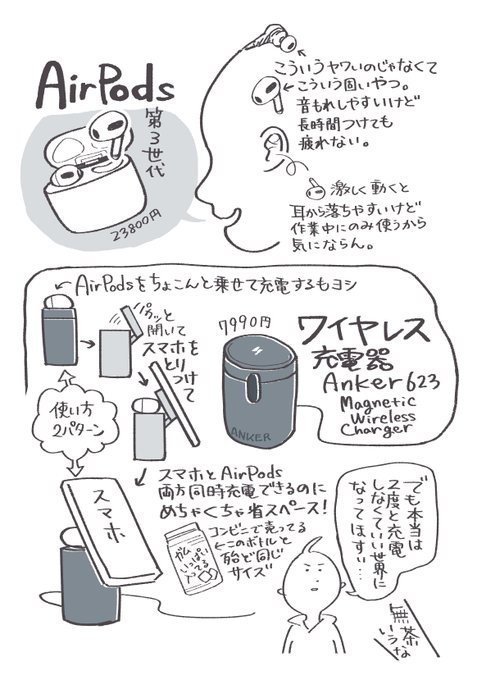 AirPods
第3世代
23800円
こういうヤワいのじゃなくて
←こういう固いやつ。
音もれしやすいけど
長時間つけても
疲れない。
激しく動くと
耳から落ちやすいけど
作業中にのみ使うから
気にならん。
AirPodsをちょこんと乗せて充電するもヨシ
パカッと
開いて
スマホを
とりつけて
7990円
ANKER
ワイヤレス
充電器
Anker623
Magnetic
Wireless
Charger
使い方
2パターン
スマホ
スマホとAirPods
両方同時充電できるのに
めちゃくちゃ省スペース!
ガム
いっぱい
入ってる
コンビニで売ってる
←このボトルと
殆ど同じ
サイズ
でも本当は
2度と充電
しなくていい世界に
なってほすぃ…
無茶な
いうな